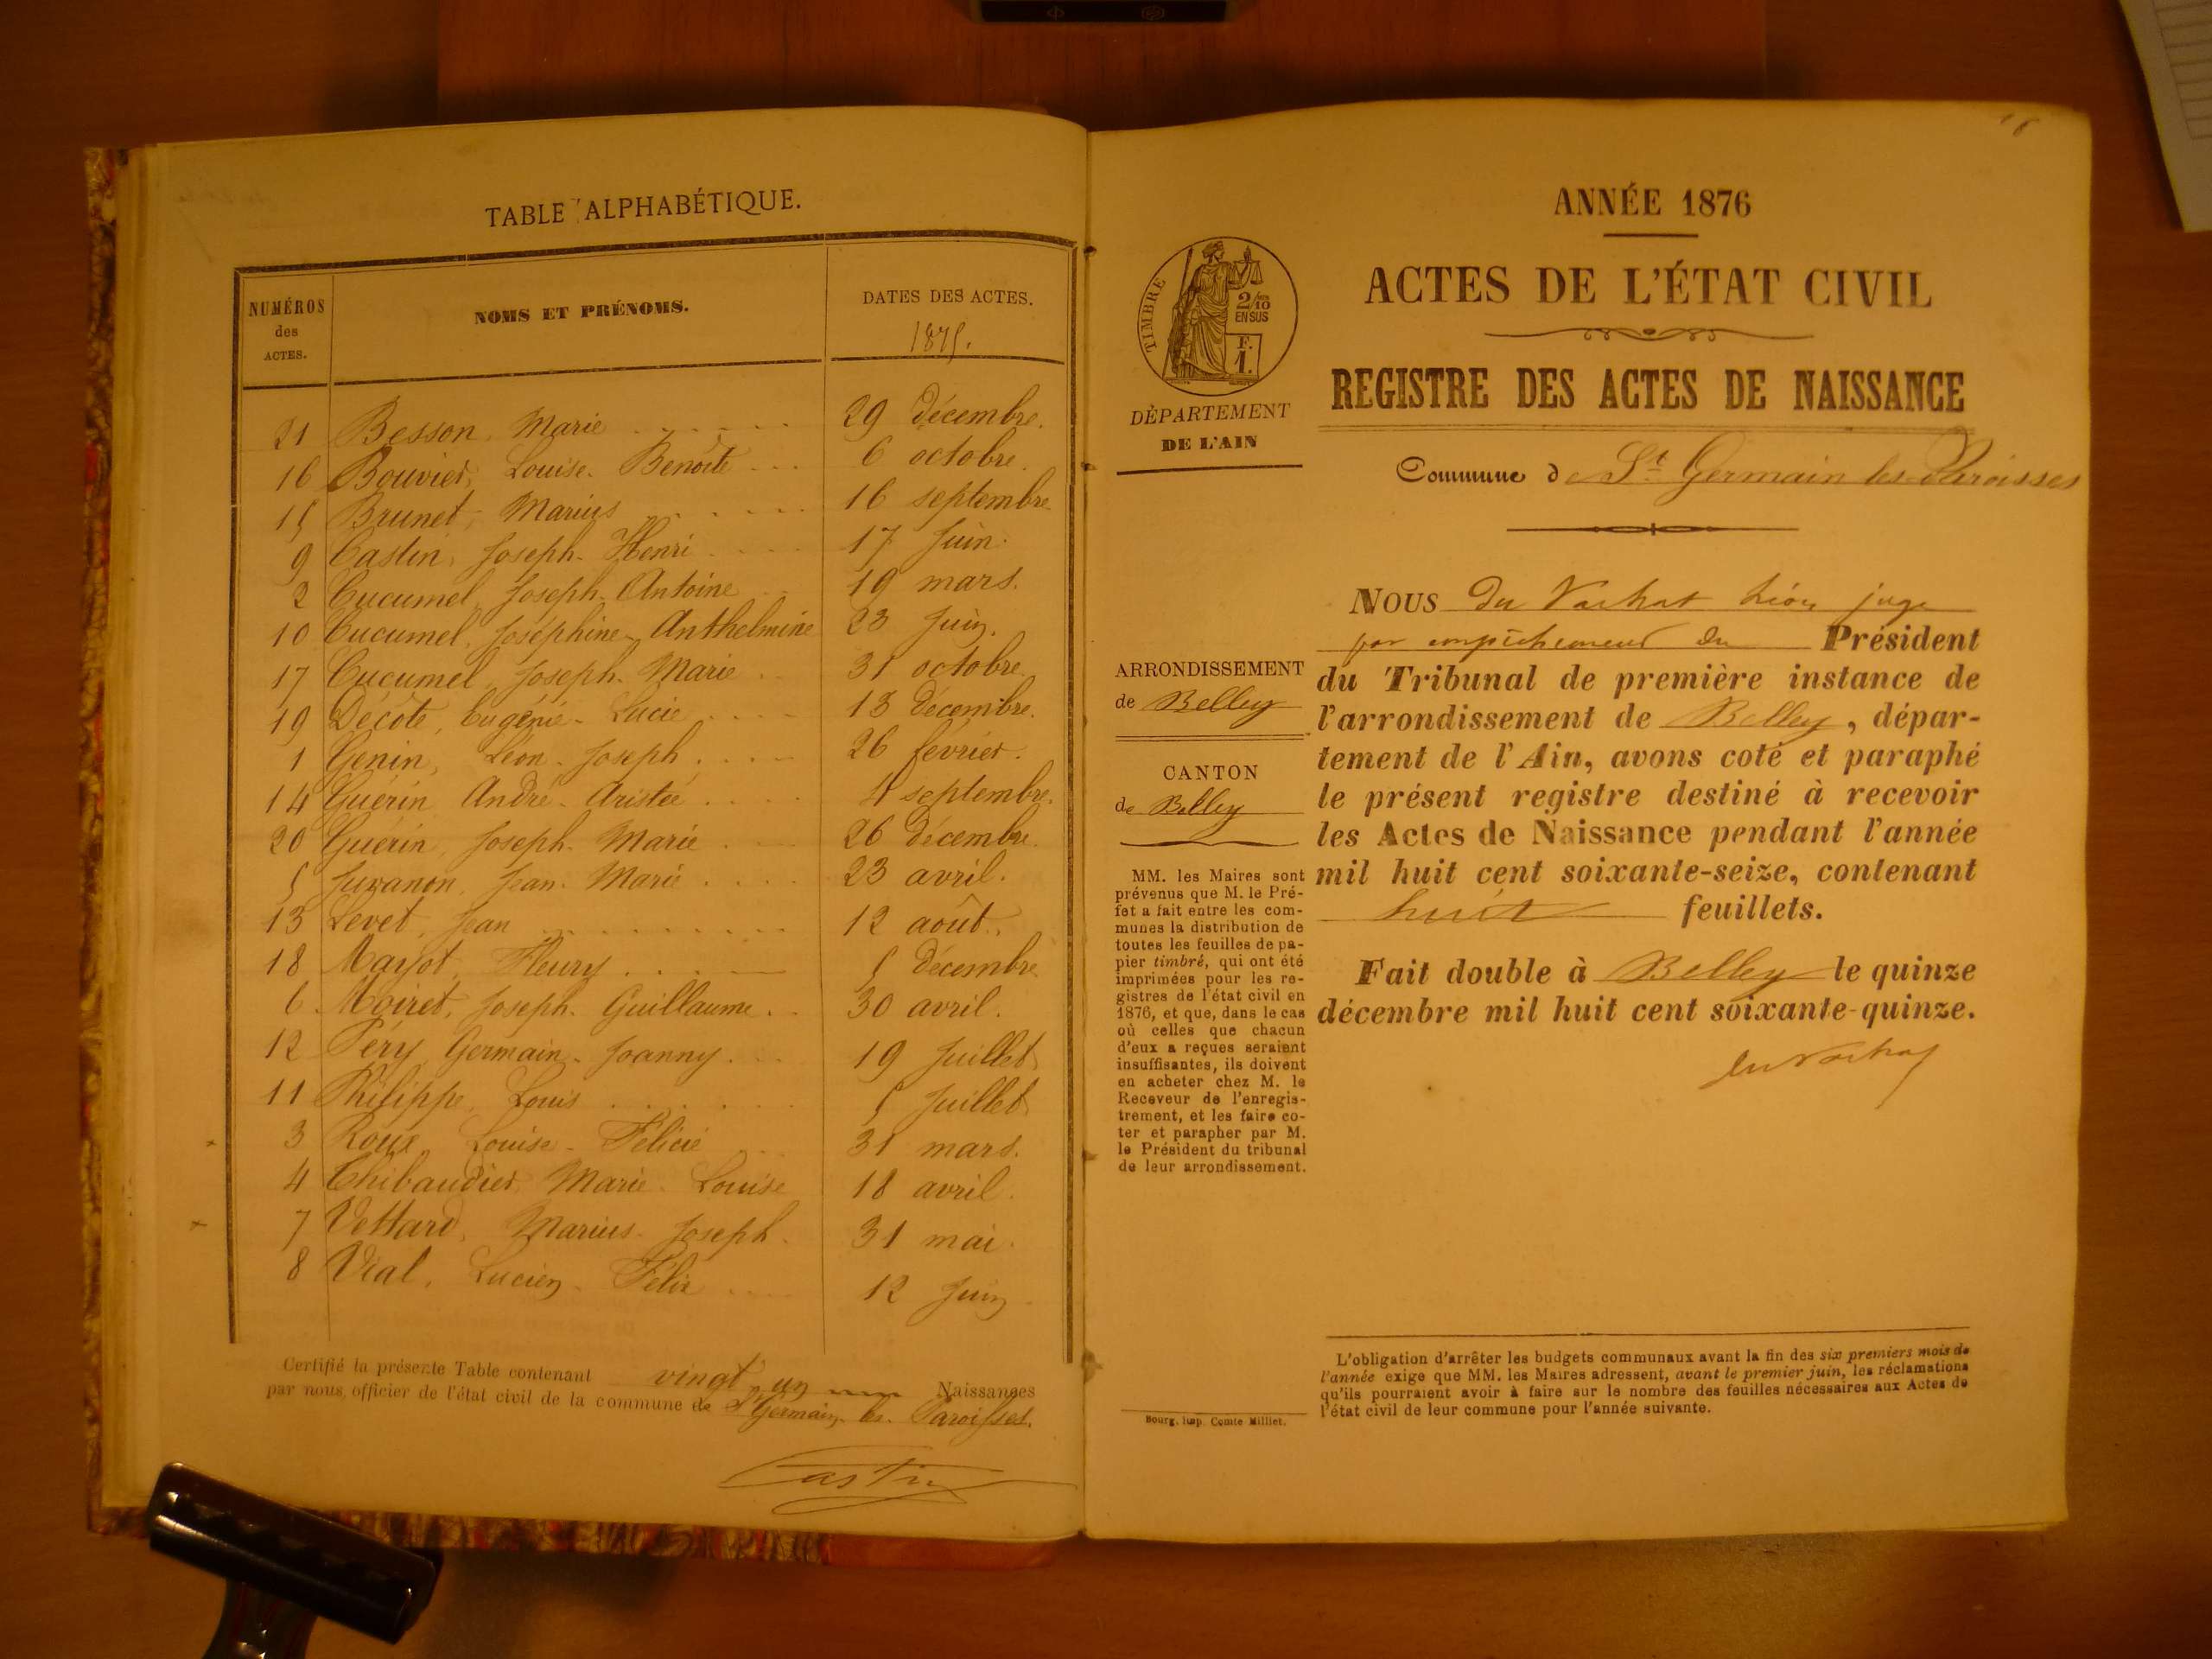 TABLE ALPHABÉTIQUE.
NUMÉROS
des
ACTES.
NOMS ET PRÉNOMS.
DATES DES ACTES.
1875.
21 Besson, Marie 29 décembre.
16 Bouvier, Louise-Benoîte 6 octobre.
15 Brunet, Marius 16 septembre
9 Castin, Joseph-Henri 17 Juin.
2 Cucumel, Joseph-Antoine 19 mars.
10 Cucumel, Joséphine-Anthelmine 23 Juin.
17 Cucumel, Joseph-Marie 31 octobre.
19 Décôte, Eugénie-Lucie 13 Décembre.
1 Genin, Léon-Joseph 26 février.
14 Guérin, André-Aristée 4 septembre.
20 Guérin, Joseph-Marie 26 décembre.
5 Juvanon, Jean-Marie 23 avril.
13 Levet, Jean 12 août.
18 Marjot, Fleury 5 Décembre
6 Moiret, Joseph-Guillaume 30 avril.
12 Péry, Germain-Joanny 19 Juillet
11 Philippe, Louis 5 Juillet
3 Roux, Louise-Félicie 31 mars.
4 Thibaudier, Marie-Louise 18 avril.
7 Vettard, Marius-Joseph 31 mai.
8 Vial, Lucien-Félix 12 Juin
Certifié la présente Table contenant vingt un Naissances
par nous, officier de l'état civil de la commune de St Germain-les-Paroisses.
Castin
ANNÉE 1876
ACTES DE L'ÉTAT CIVIL
REGISTRE DES ACTES DE NAISSANCE
Commune de St Germain les Paroisses
TIMBRE
2/10
EN SUS
F.
1.
DÉPARTEMENT
DE L'AIN
ARRONDISSEMENT
de Belley
CANTON
de Belley
MM. les Maires sont
prévenus que M. le Pré-
fet a fait entre les com-
munes la distribution de
toutes les feuilles de pa-
pier timbré, qui ont été
imprimées pour les re-
gistres de l'état civil en
1876, et que, dans le cas
où celles que chacun
d'eux a reçues seraient
insuffisantes, ils doivent
en acheter chez M. le
Receveur de l'enregis-
trement, et les faire co-
ter et parapher par M.
le Président du tribunal
de leur arrondissement.
Bourg, Imp. Comte Milliet.
NOUS Du Vachat Léon juge
par empêchement du Président
du Tribunal de première instance de
l'arrondissement de Belley, dépar-
tement de l'Ain, avons coté et paraphé
le présent registre destiné à recevoir
les Actes de Naissance pendant l'année
mil huit cent soixante-seize, contenant
huit feuillets.
Fait double à Belley le quinze
décembre mil huit cent soixante-quinze.
du Vachat
L'obligation d'arrêter les budgets communaux avant la fin des six premiers mois de
l'année exige que MM. les Maires adressent, avant le premier juin, les réclamations
qu'ils pourraient avoir à faire sur le nombre des feuilles nécessaires aux Actes de
l'état civil de leur commune pour l'année suivante.